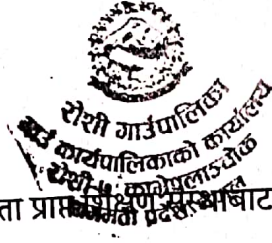 रोशी गाउंपालिका
गाउँ कार्यपालिकाको कार्यालय
रोशी-७, काभ्रेपलाञ्चोक
बागमती प्रदेश
ता प्राप्त शिक्षण संस्थाबाट